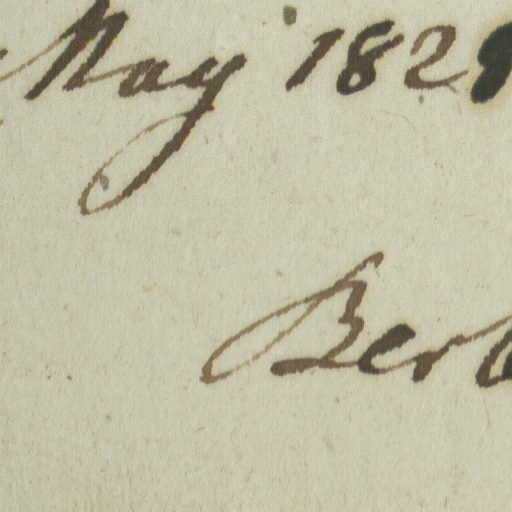 May 182
Berl